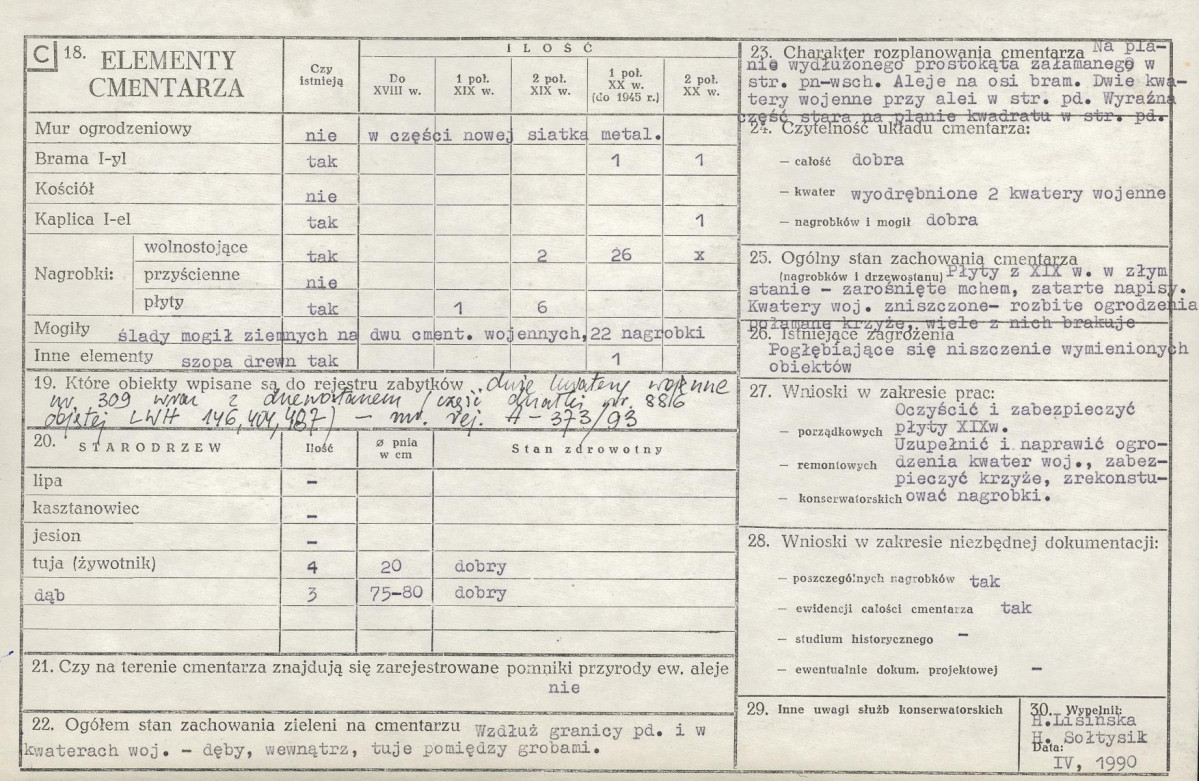 C 18. ELEMENTY CMENTARZA
Czy istnieją
ILOŚĆ
Do XVIII w.
1 poł. XIX w.
2 poł. XIX w.
1 poł. XX w. (do 1945 r.)
2 poł. XX w.
Mur ogrodzeniowy nie w części nowej siatka metal.
Brama I-yl tak 1 1
Kościół nie
Kaplica I-el tak 1
Nagrobki: wolnostojące tak 2 26 x
przyścienne nie
płyty tak 1 6
Mogiły ślady mogił ziemnych na dwu cment. wojennych,22 nagrobki
Inne elementy szopa drewn tak 1
19. Które obiekty wpisane są do rejestru zabytków dwie kwatery wojenne
nr. 309 wraz z drzewostanem (część działki nr. 886
objętej LWH 146, 404, 487) – nr. rej. A-373/93
20. STARODRZEW Ilość ø pnia w cm Stan zdrowotny
lipa –
kasztanowiec –
jesion –
tuja (żywotnik) 4 20 dobry
dąb 3 75-80 dobry
21. Czy na terenie cmentarza znajdują się zarejestrowane pomniki przyrody ew. aleje
nie
22. Ogółem stan zachowania zieleni na cmentarzu Wzdłuż granicy pd. i w
kwaterach woj. – dęby, wewnątrz, tuje pomiędzy grobami.
23. Charakter rozplanowania cmentarza Na pla-
nie wydłużonego prostokąta załamanego w
str. pn-wsch. Aleje na osi bram. Dwie kwa-
tery wojenne przy alei w str. pd. Wyraźna
część stara na planie kwadratu w str. pd.
24. Czytelność układu cmentarza:
– całość dobra
– kwater wyodrębnione 2 kwatery wojenne
– nagrobków i mogił dobra
25. Ogólny stan zachowania cmentarza
(nagrobków i drzewostanu) Płyty z XIX w. w złym
stanie – zarośnięte mchem, zatarte napisy.
Kwatery woj. zniszczone- rozbite ogrodzenia
połamane krzyże, wiele z nich brakuje
26. Istniejące zagrożenia
Pogłębiające się niszczenie wymienionych
obiektów
27. Wnioski w zakresie prac:
Oczyścić i zabezpieczyć
– porządkowych płyty XIXw.
Uzupełnić i naprawić ogro-
– remontowych dzenia kwater woj., zabez-
pieczyć krzyże, zrekonstu-
– konserwatorskich ować nagrobki.
28. Wnioski w zakresie niezbędnej dokumentacji:
– poszczególnych nagrobków tak
– ewidencji całości cmentarza tak
– studium historycznego –
– ewentualnie dokum. projektowej –
29. Inne uwagi służb konserwatorskich
30. Wypełnił:
H.Lisińska
H. Sołtysik
Data:
IV, 1990